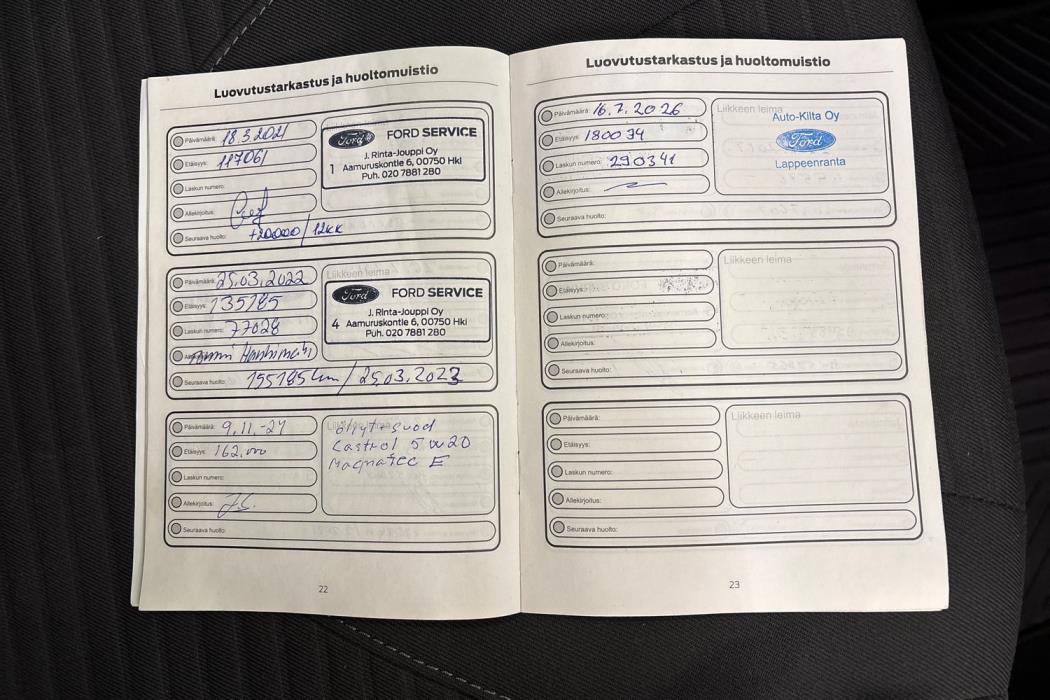 Luovutustarkastus ja huoltomuistio
Päivämäärä: 18.3.2021
Etäisyys: 117061
Laskun numero:
Allekirjoitus:
Seuraava huolto: +20000 / 12kk
Ford FORD SERVICE
J. Rinta-Jouppi Oy
1 Aamuruskontie 6, 00750 Hki
Puh. 020 7881 280
Päivämäärä: 25.03.2022
Etäisyys: 135185
Laskun numero: 77028
Seuraava huolto: 155185km / 25.03.2023
Liikkeen leima
Ford FORD SERVICE
J. Rinta-Jouppi Oy
4 Aamuruskontie 6, 00750 Hki
Puh. 020 7881 280
Päivämäärä: 9.11.-24
Etäisyys: 162.000
Laskun numero:
Allekirjoitus: JS.
Seuraava huolto:
öljyt+suod
Castrol 5W20
Magnatec E
22
Luovutustarkastus ja huoltomuistio
Päivämäärä: 16.7.2026
Etäisyys: 180034
Laskun numero: 290341
Allekirjoitus:
Seuraava huolto:
Liikkeen leima
Auto-Kilta Oy
Ford
Lappeenranta
Päivämäärä:
Etäisyys:
Laskun numero:
Allekirjoitus:
Seuraava huolto:
Liikkeen leima
Päivämäärä:
Etäisyys:
Laskun numero:
Allekirjoitus:
Seuraava huolto:
Liikkeen leima
23